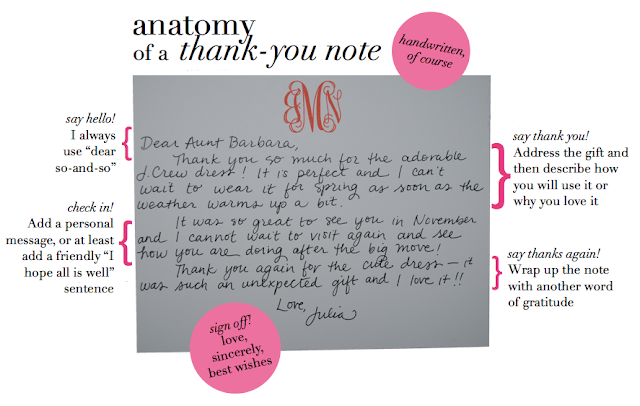 anatomy
of a thank-you note
handwritten,
of course
say hello!
I always
use “dear
so-and-so”
check in!
Add a personal
message, or at least
add a friendly “I
hope all is well”
sentence
Dear Aunt Barbara,
Thank you so much for the adorable
J.Crew dress! It is perfect and I can't
wait to wear it for Spring as soon as the
weather warms up a bit.
It was so great to see you in November
and I cannot wait to visit again and see
how you are doing after the big move!
Thank you again for the cute dress – it
was such an unexpected gift and I love it!!
Love,
Julia
say thank you!
Address the gift and
then describe how
you will use it or
why you love it
say thanks again!
Wrap up the note
with another word
of gratitude
sign off!
love,
sincerely,
best wishes